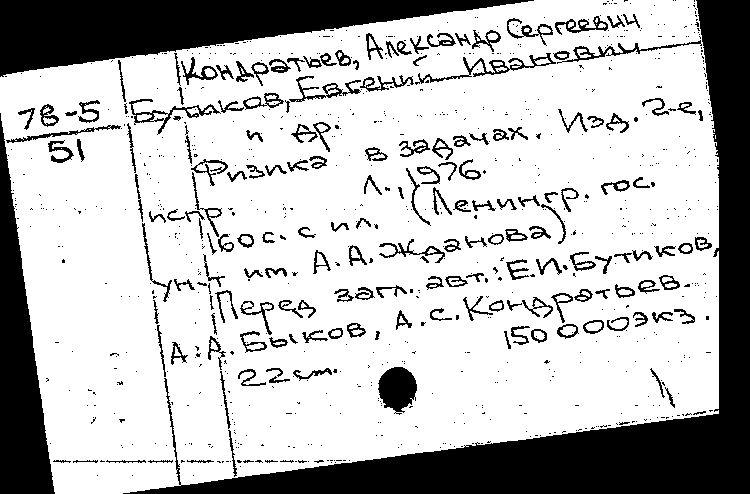 Кондратьев, Александр Сергеевич
78-5
51
Бутиков, Евгений Иванович
и др.
Физика в задачах. Изд. 2-е,
испр. Л., 1976.
160 с. с ил. (Ленингр. гос.
ун-т им. А.А. Жданова).
Перед загл. авт.: Е.И. Бутиков,
А.А. Быков, А.С. Кондратьев.
22 см. 150 000 экз.